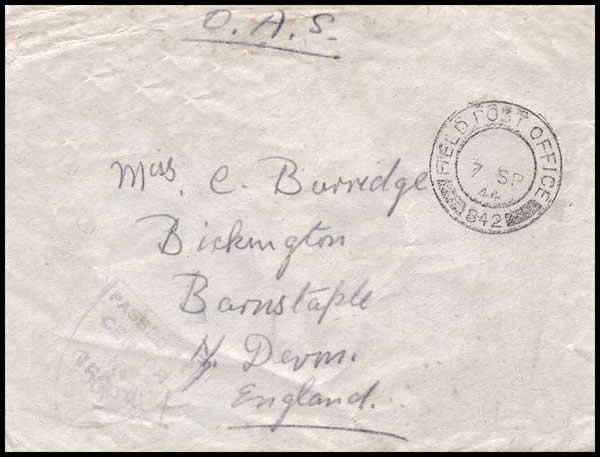 O.A.S.
FIELD POST OFFICE
7 SP
44
842
Miss. C. Burridge
Bickington
Barnstaple
N. Devon.
England.
PASSED